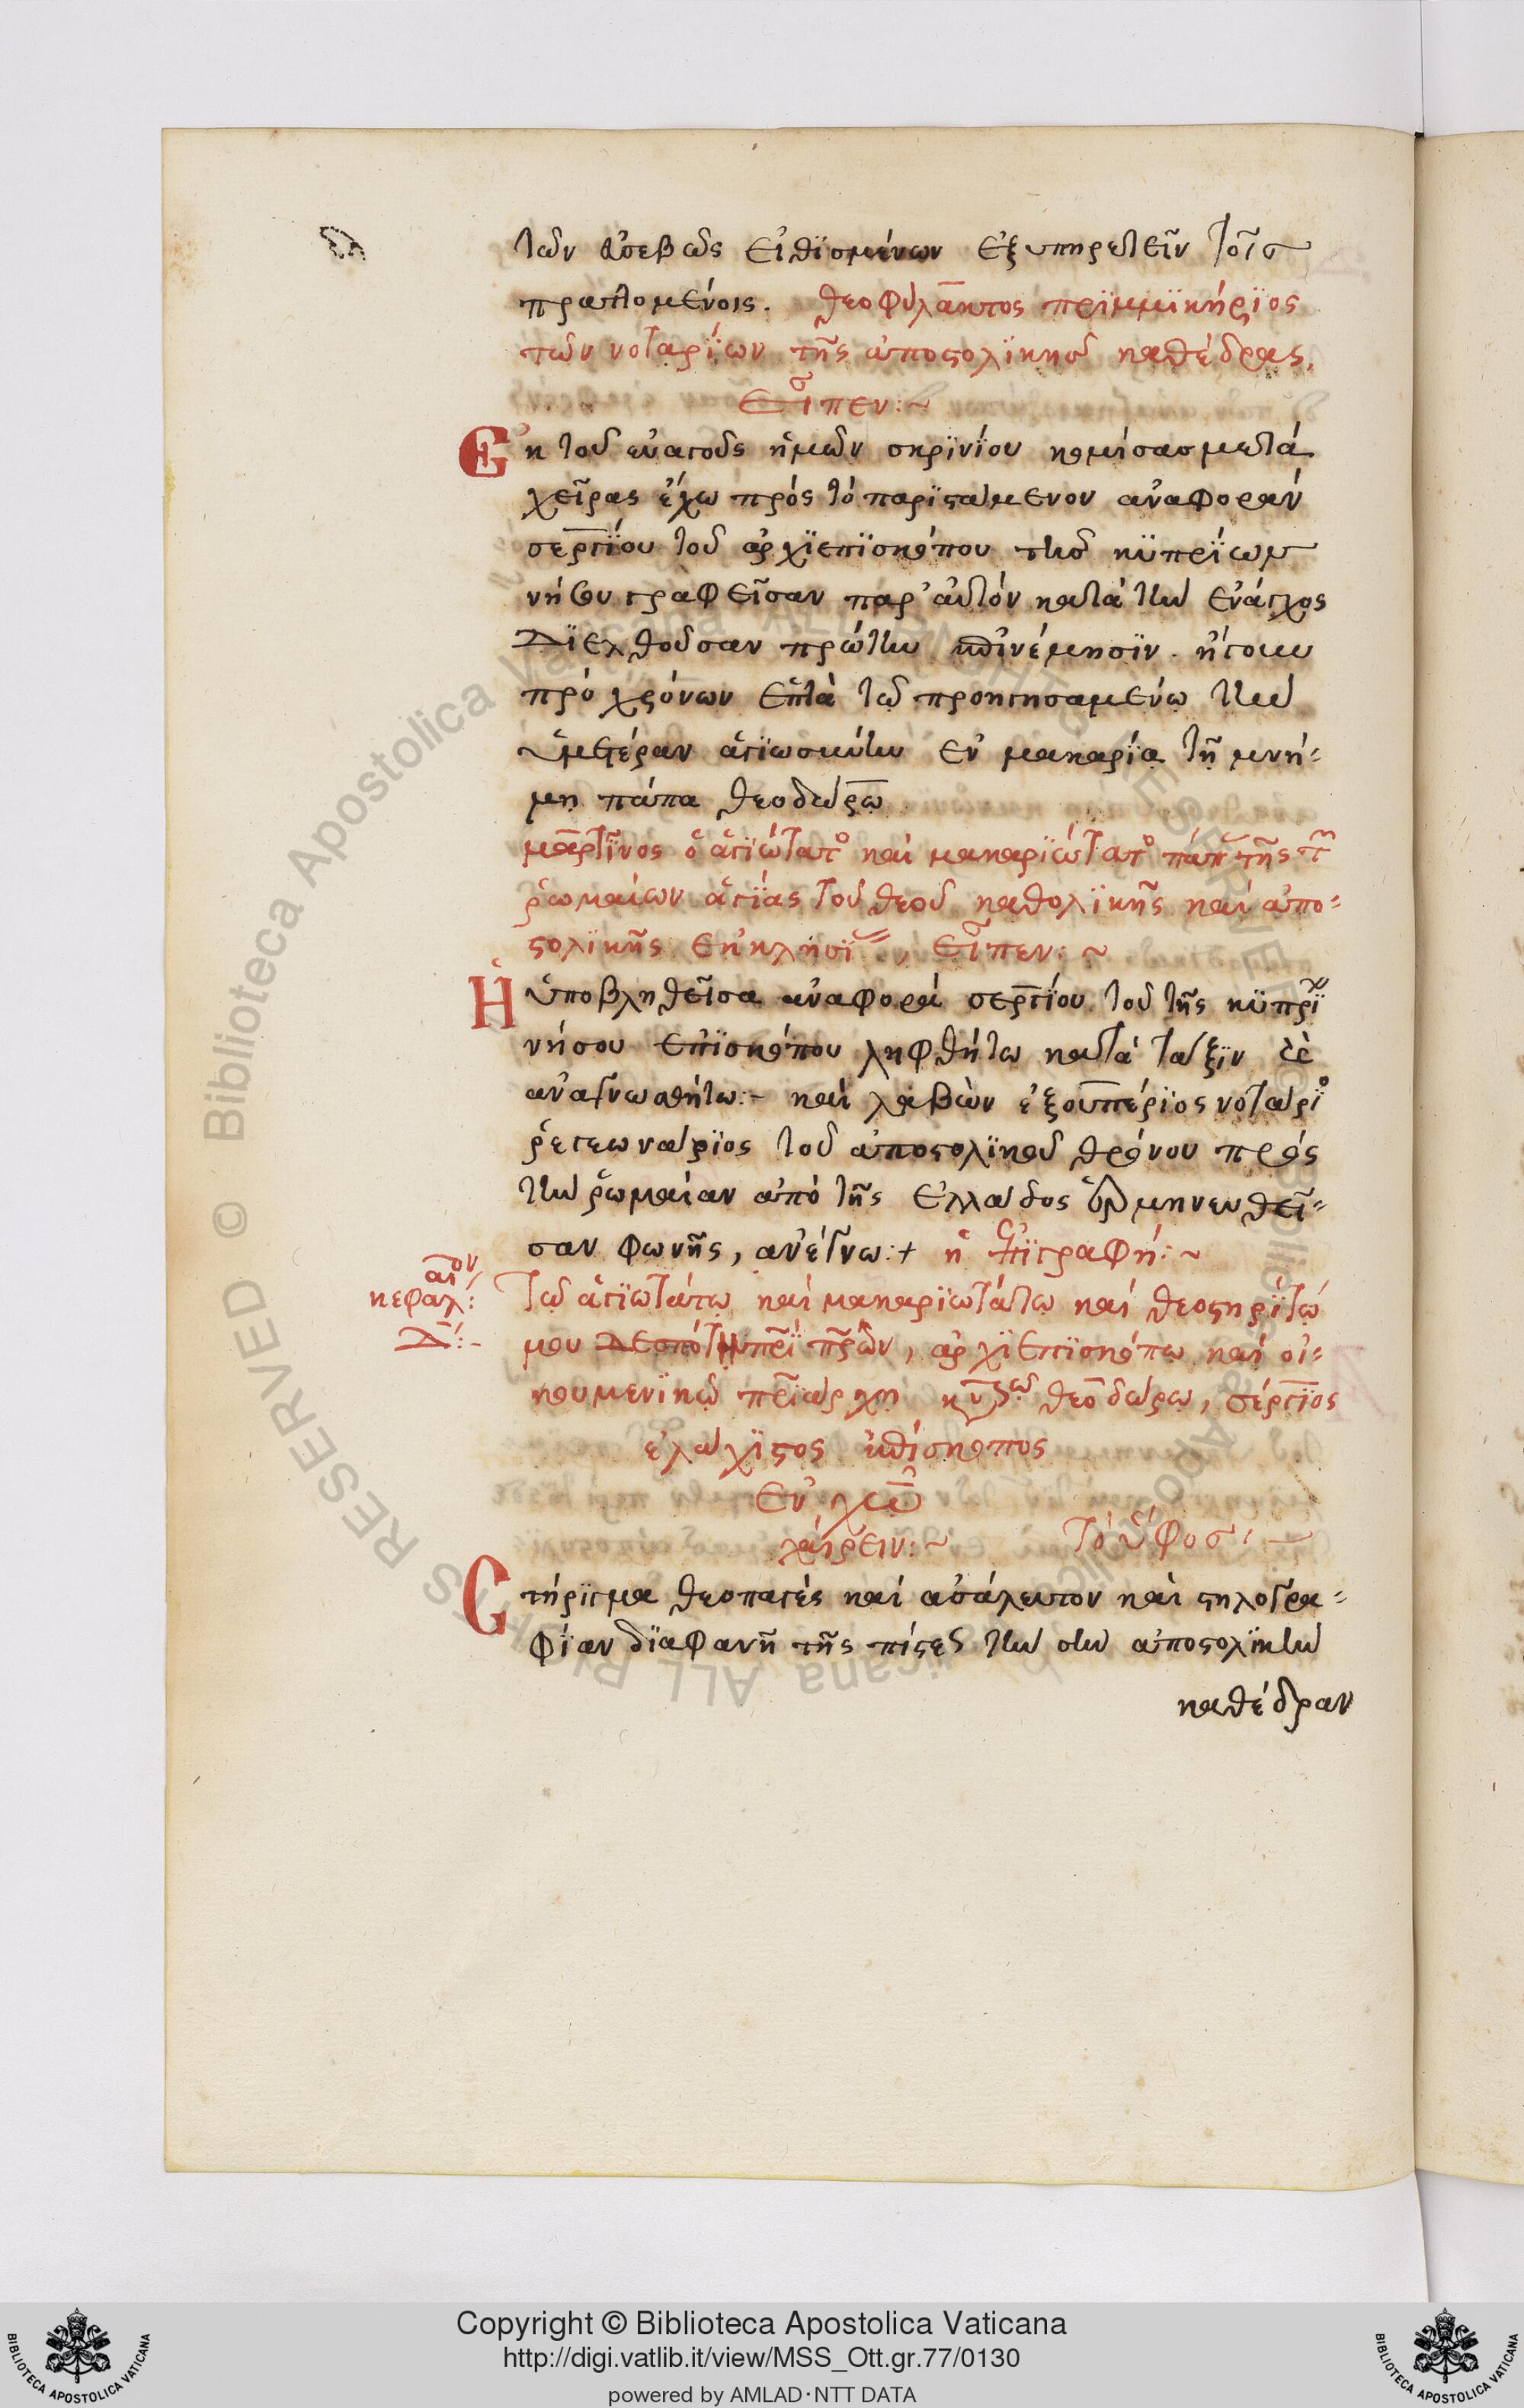 τῶν ἀσεβῶς εἰθϊσμένων ἐξυπηρετεῖν τοῖς
πραττομένοις. θεοφύλακτος πρϊμμϊκήρϊος
τῶν νοταρΐων τῆς ἀποστολϊκῆς καθέδρας,
εἶπεν:~
Ἐκ τοῦ εὐαγοῦς ἡμῶν σκρϊνΐου κομίσας μετὰ
χεῖρας ἔχω πρὸς τὸ παρϊστάμενον ἀναφορὰν
σεργΐου τοῦ ἀρχϊεπϊσκόπου τῆς κϋπρΐων
νήσου γραφεῖσαν παρ' αὐτὸν κατὰ τὴν ἐνάγχος
Δϊελθοῦσαν πρώτην ἐπινέμησϊν. ἤγουν
πρὸ χρόνων ἑπτὰ τῷ προηγησαμένῳ τὴν
ὑμετέραν ἁγϊωσύνην ἐν μακαρΐᾳ τῇ μνή-
μῃ πάπα θεοδώρῳ
μαρτῖνος ὁ ἁγϊώτατο καὶ μακαρϊώτατο πάπ τῆς τ
ῥωμαίων ἁγΐας τοῦ θεοῦ καθολϊκῆς καὶ ἀπο-
στολϊκῆς ἐκκλησϊ, εἶπεν:~
Ἡ ὑποβληθεῖσα ἀναφορὰ σεργΐου τοῦ τῆς κϋπρΐ
νήσου ἐπϊσκόπου ληφθήτω κατὰ τάξϊν καὶ
ἀναγνωσθήτω:- καὶ λαβὼν ἐξουπέρϊος νοτάρϊο
ῥεγεωνάρϊος τοῦ ἀποστολϊκοῦ θρόνου πρὸς
τὴν ῥωμαίαν ἀπὸ τῆς ἑλλάδος ἑρμηνευθεῖ-
σαν φωνῆς, ἀνέγνω:+ ἡ ἐπϊγραφή:~
κεφάλαιον Δ':-
Τῷ ἁγϊωτάτῳ καὶ μακαρϊωτάτῳ καὶ θεοστηρΐτῳ
μου Δεσπότῃ πρΐ πρῶν, ἀρχϊεπϊσκόπῳ καὶ οἰ-
κουμενϊκῷ πρϊάρχῃ κυρῷ θεοδώρῳ, σέργϊος
ἐλάχϊστος ἐπίσκοπος
Ἐν χω
χαίρειν:~ Τὸ ὕφος: —
Στήρϊγμα θεοπαγὲς καὶ ἀσάλευτον καὶ στηλογρα-
φΐαν δϊαφανῆ τῆς πίστεως τὴν σὴν ἀποστολϊκὴν
καθέδραν
Copyright © Biblioteca Apostolica Vaticana
http://digi.vatlib.it/view/MSS_Ott.gr.77/0130
powered by AMLAD·NTT DATA